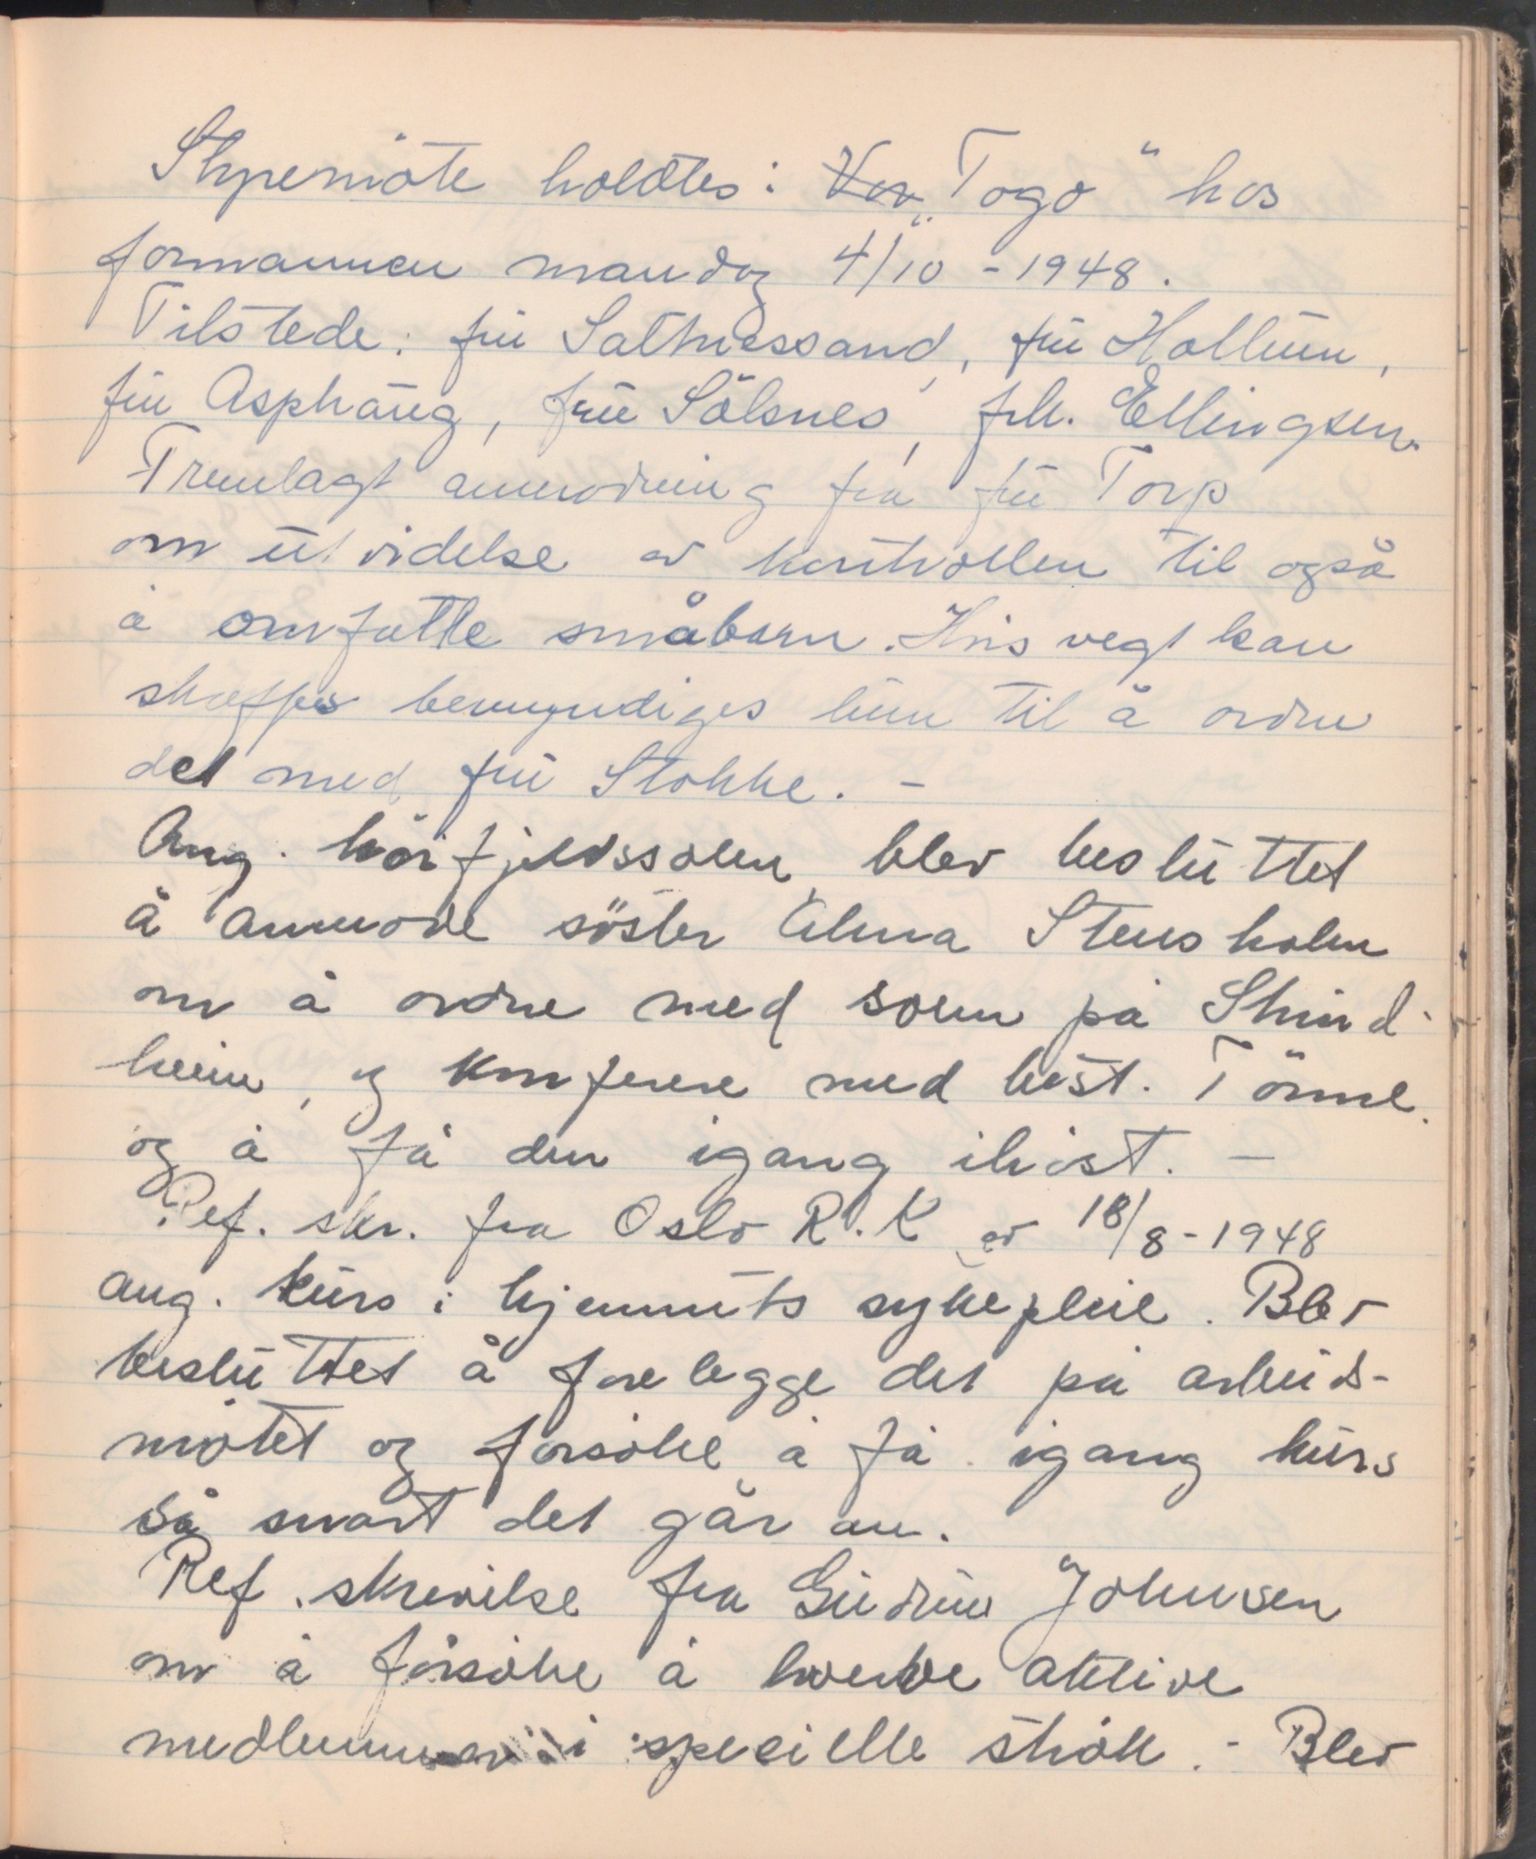 Styremöte holdtes i Vor "Togo" hos
formannen mandag 4/10 - 1948.
Tilstede: fru Sathressand, fru Hollum,
fru Asphaug, fru Sölsnes, frk. Ellingsen.
Fremlagt anmodning fra fru Torp
om utvidelse av kontrollen til også
å omfatte småbarn. Hvis vegt kan
skaffes bemyndiges hun til å ordne
det med fru Stokke. -
Ang. höifjeldssolen blev besluttet
å anmode söster Alma Stensholm
om å ordne med solen på
heim, og konferere med best. Tönne
og å få den igang ihöst. -
Ref. skr. fra Oslo R.K av 18/8 - 1948
ang. kurs i hjemmets sykepleie. Blev
besluttet å forelegge det på arbeids-
mötet og forsöke å få igang kurs
så snart det går an.
Ref. skrivelse fra Gudrun Johnsen
om å forsöke å hverve aktive
medlemmer i specielle strök. - Blev